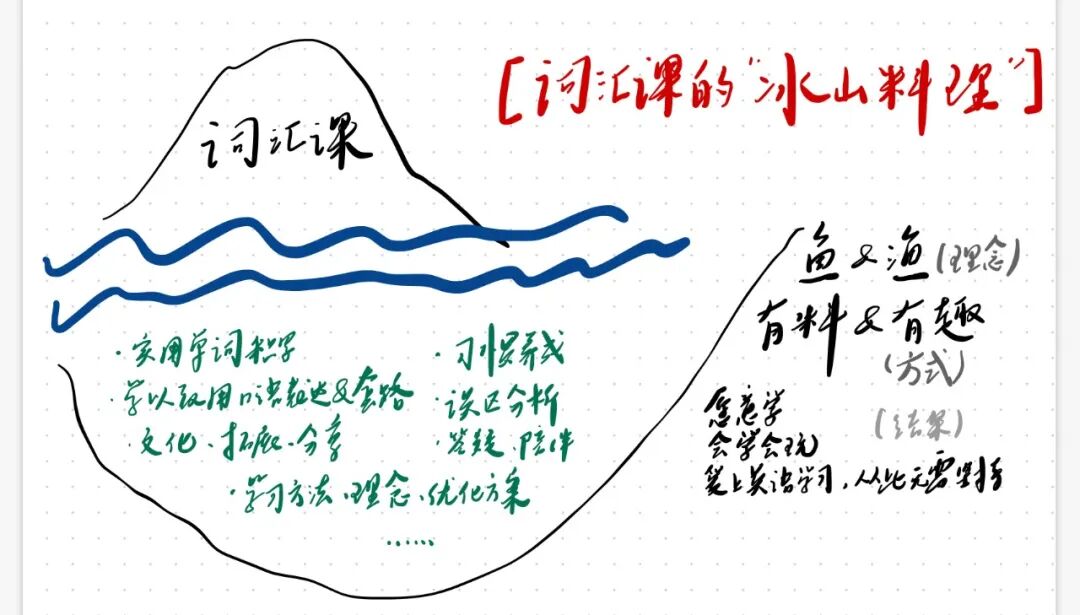 [词汇课的"冰山料理"]
词汇课
·实用单词积累
·学以致用口语表达&套路
·文化、拓展、分享
·学习方法、理念、优化方案
……
·习惯养成
·误区分析
·答疑、陪伴
鱼&渔(理念)
有料&有趣
(方式)
愿意学
会学会玩
(结果)
爱上英语学习,从此无需坚持